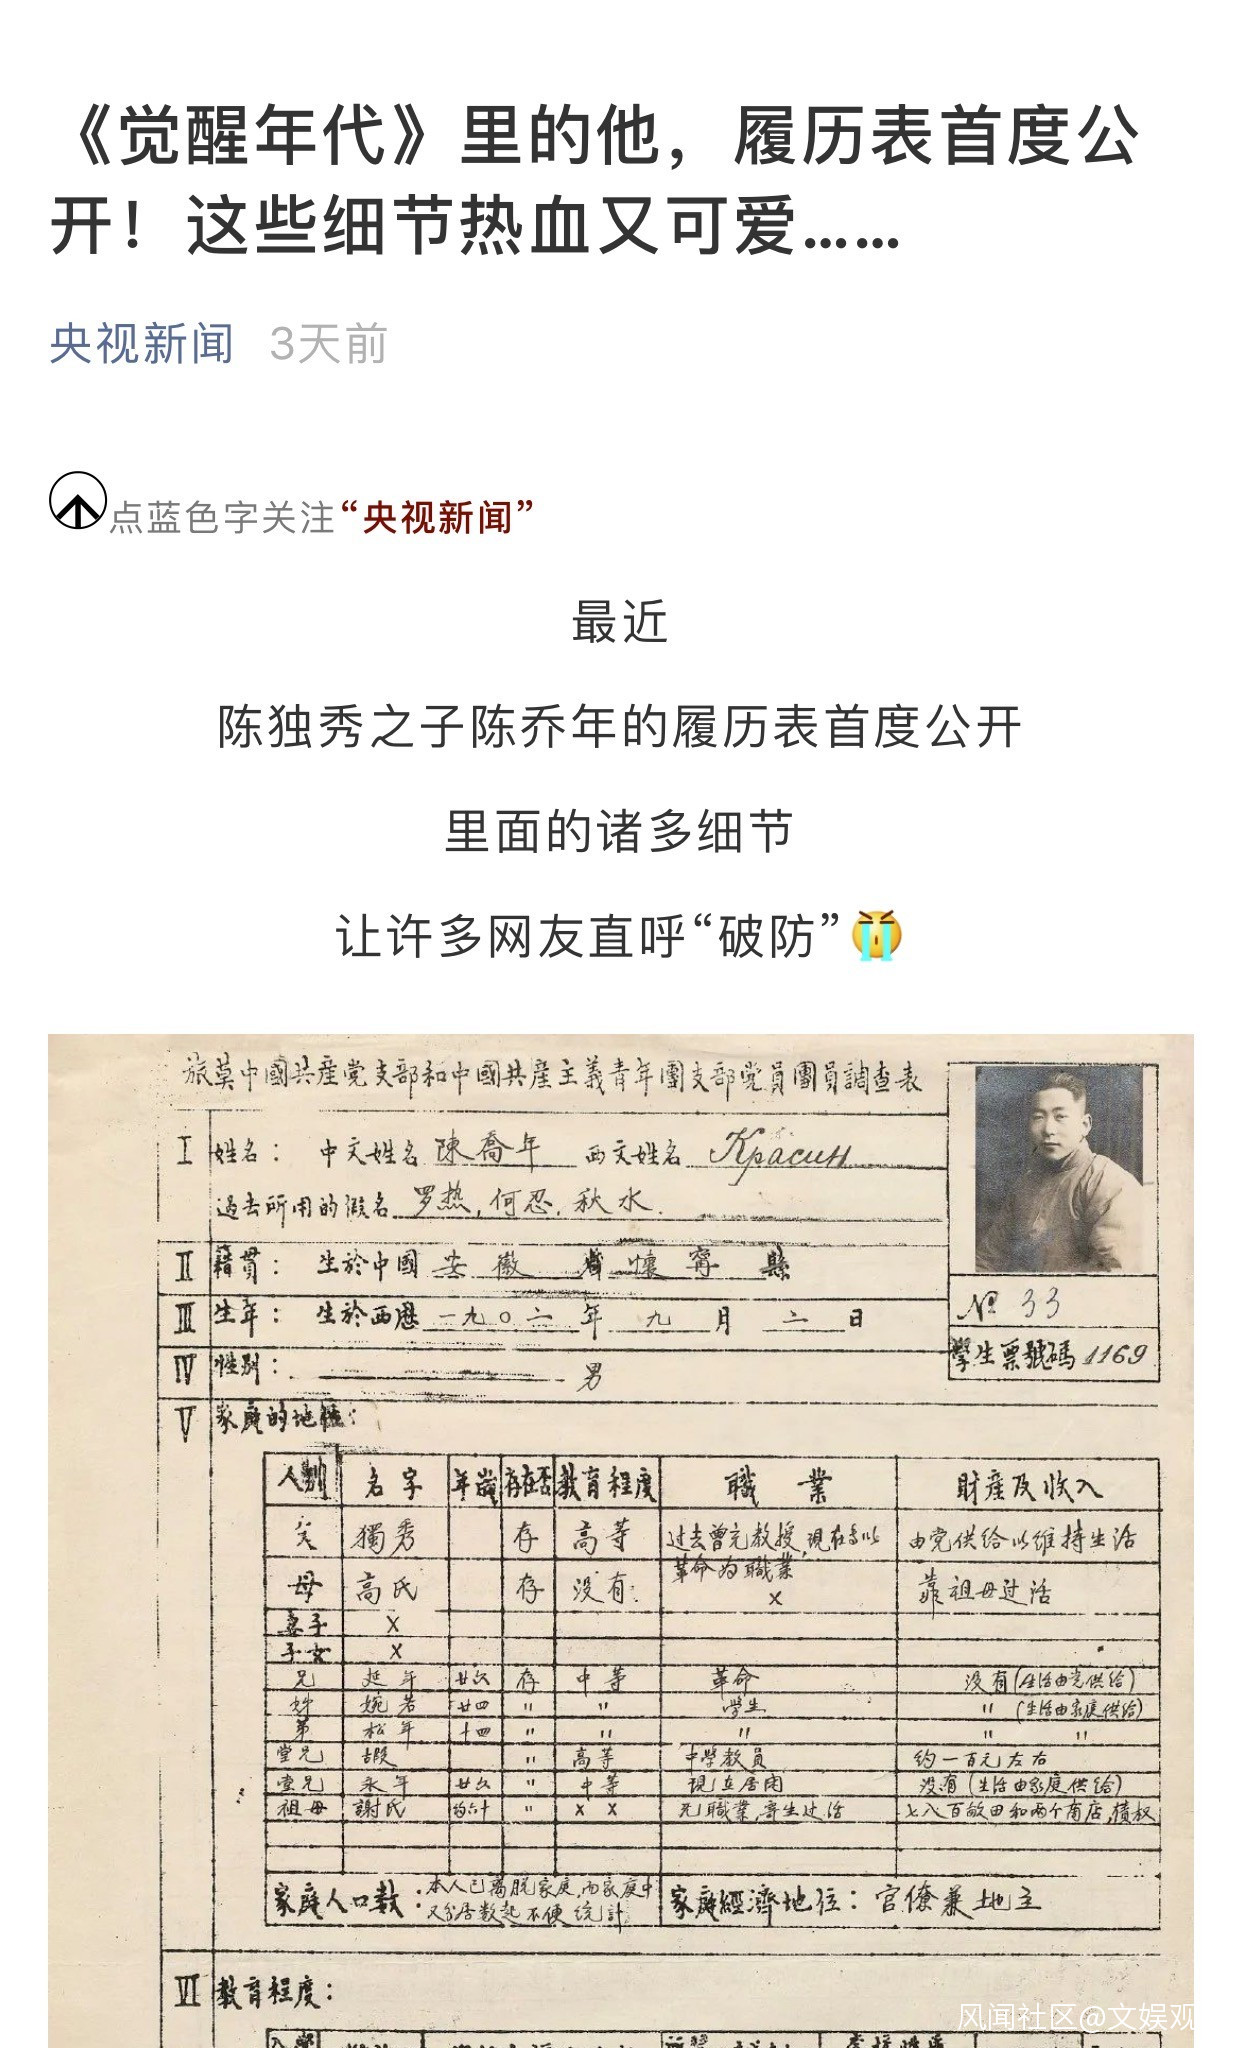 《觉醒年代》里的他，履历表首度公
开！这些细节热血又可爱……
央视新闻 3天前
点蓝色字关注“央视新闻”
最近
陈独秀之子陈乔年的履历表首度公开
里面的诸多细节
让许多网友直呼“破防”
旅莫中國共產党支部和中國共產主義青年團支部党員團員調查表
I 姓名： 中文姓名 陳喬年 西文姓名 Красин
過去所用的假名 罗热，何忍，秋水.
II 籍貫： 生於中國 安徽 省 懷寧 縣
III 生年： 生於西歷 一九〇二 年 九 月 二 日
№ 33
IV 性别： 男
學生票號碼 1169
V 家庭的地位：
人別 名字 年齡 存在否 教育程度 職業 財產及收入
父 獨秀 存 高等 过去曾充教授，現在專以革命为職業 由党供给以维持生活
母 高氏 存 没有. × 靠祖母过活
妻子 ×
子女 ×
兄 延年 廿六 存 中等 革命 没有(生活由党供给)
婉若 廿四 〃 〃 学生 〃 (生活由家庭供给)
弟 松年 十四 〃 〃 〃 〃 〃
堂兄 遐 〃 高等 中學教員 约一百元左右
堂兄 永年 廿六 〃 中等 現在居闲 没有(生活由家庭供给)
祖母 謝氏 约六十 〃 × × 无職業，寄生过活 七八百畝田和两个商店，債权
家庭人口數：本人已离脱家庭，而家庭中又分居数起不便统計 家庭經濟地位：官僚兼地主
VI 教育程度：
风闻社区@文娱观